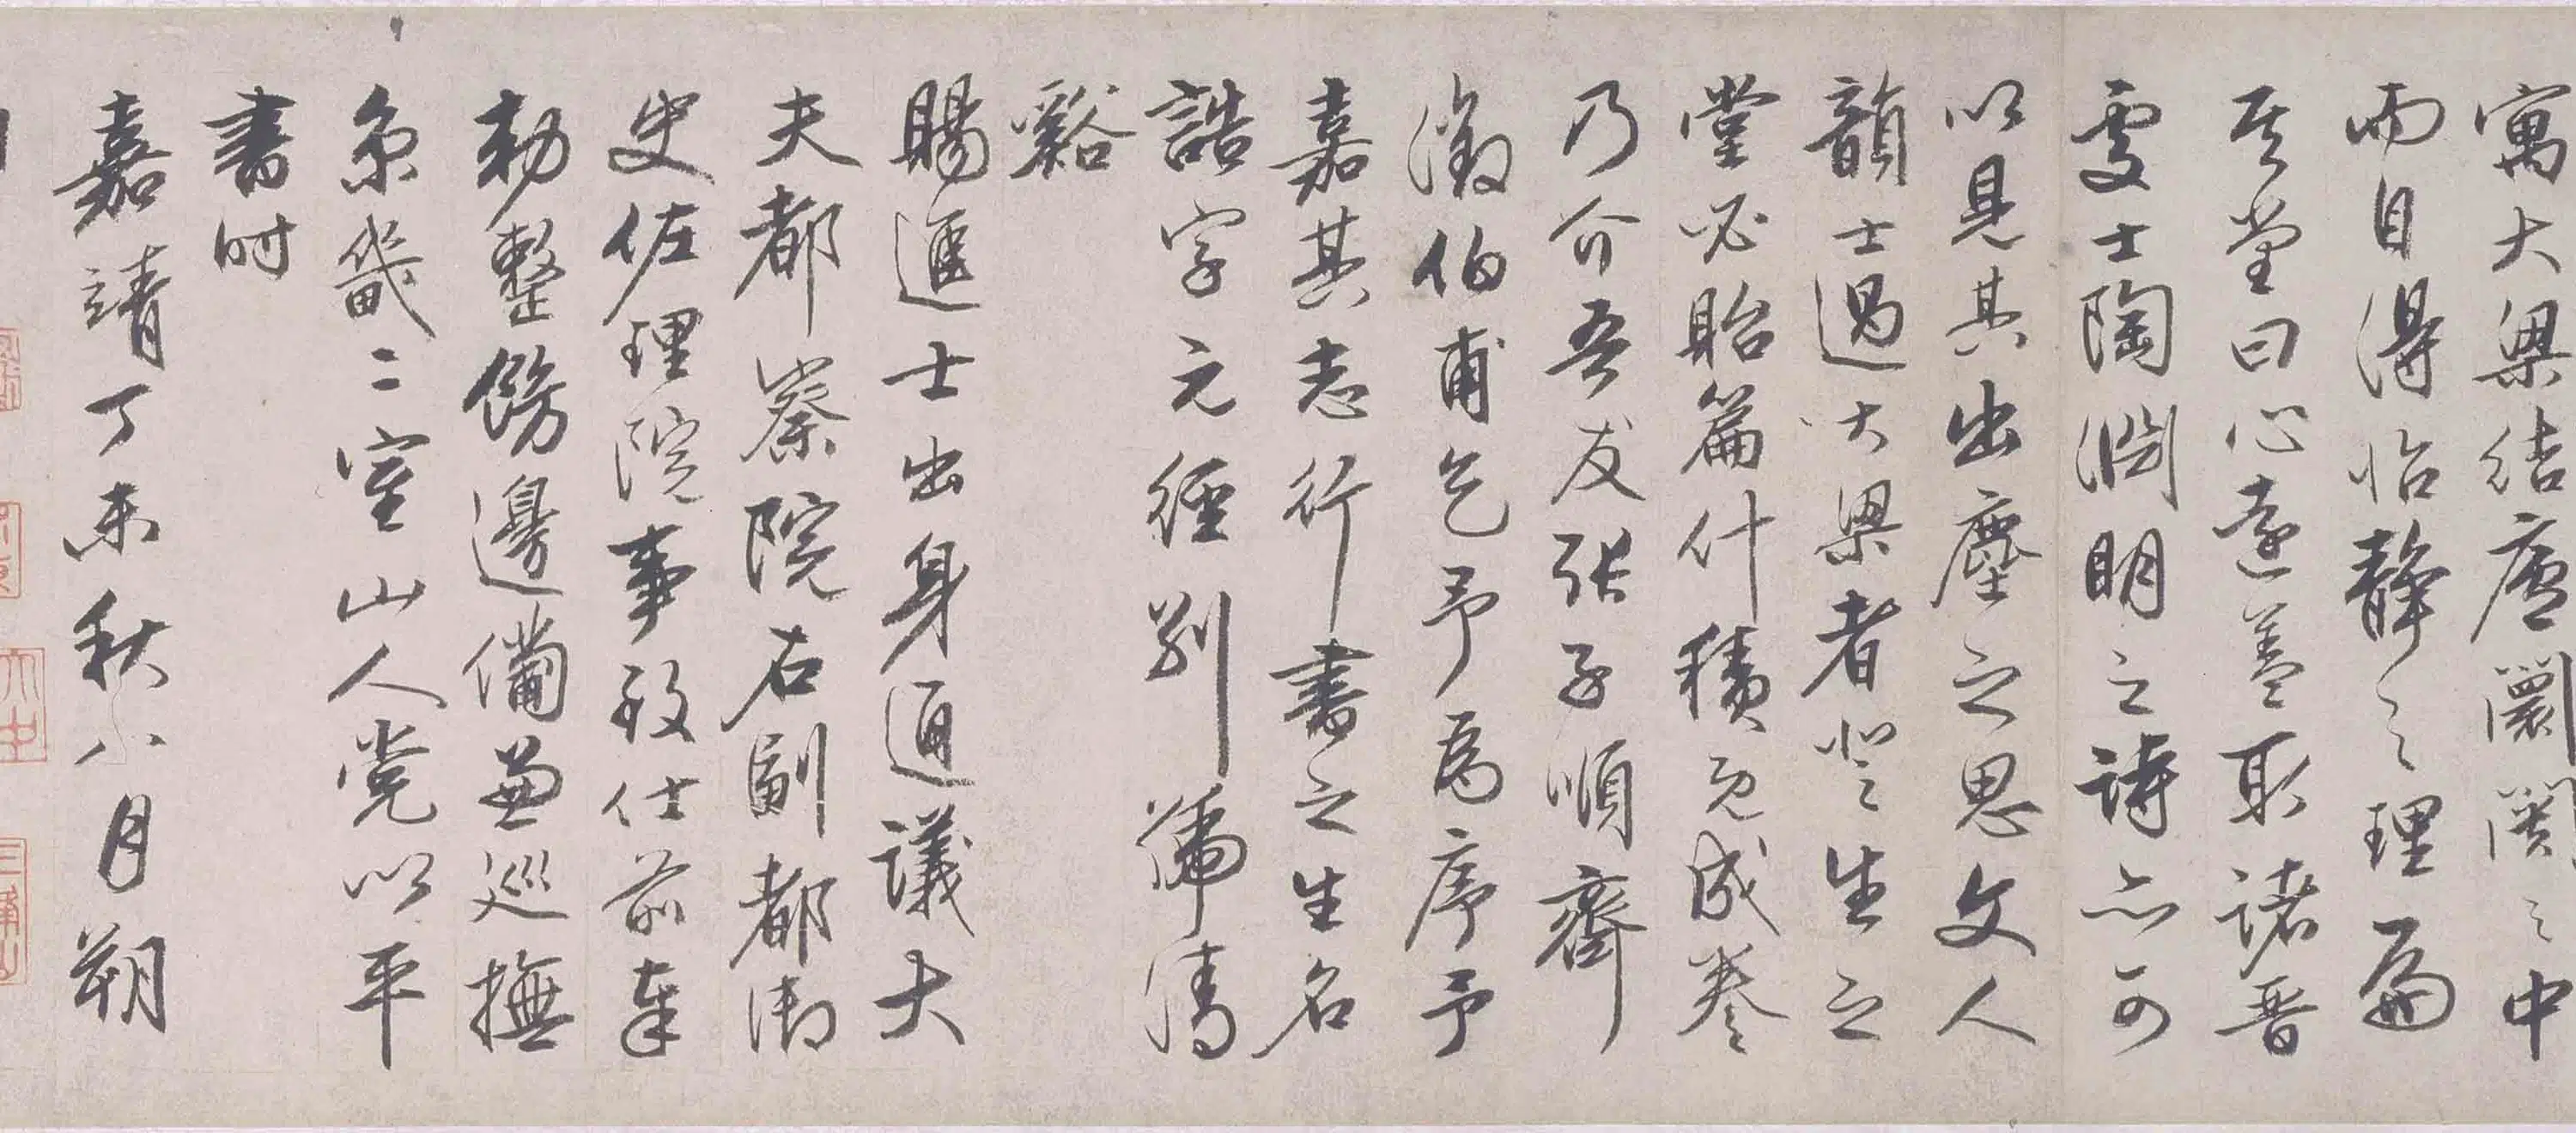 寓大梁結廬闤闠之中
而自得怡靜之理扁
其堂曰心遠蓋取諸晉
處士陶淵明之詩亦可
以見其出塵之思文人
韻士過大梁者登生之
堂必貽篇什積既成卷
乃介吾友張子順齊
徵伯甫乞予為序予
嘉其志行書之生名
誥字元經別號清
谿
賜進士出身通議大
夫都察院右副都御
史佐理院事致仕前奉
勅整飭邊備兼巡撫
京畿二室山人党以平
書時
嘉靖丁未秋八月朔